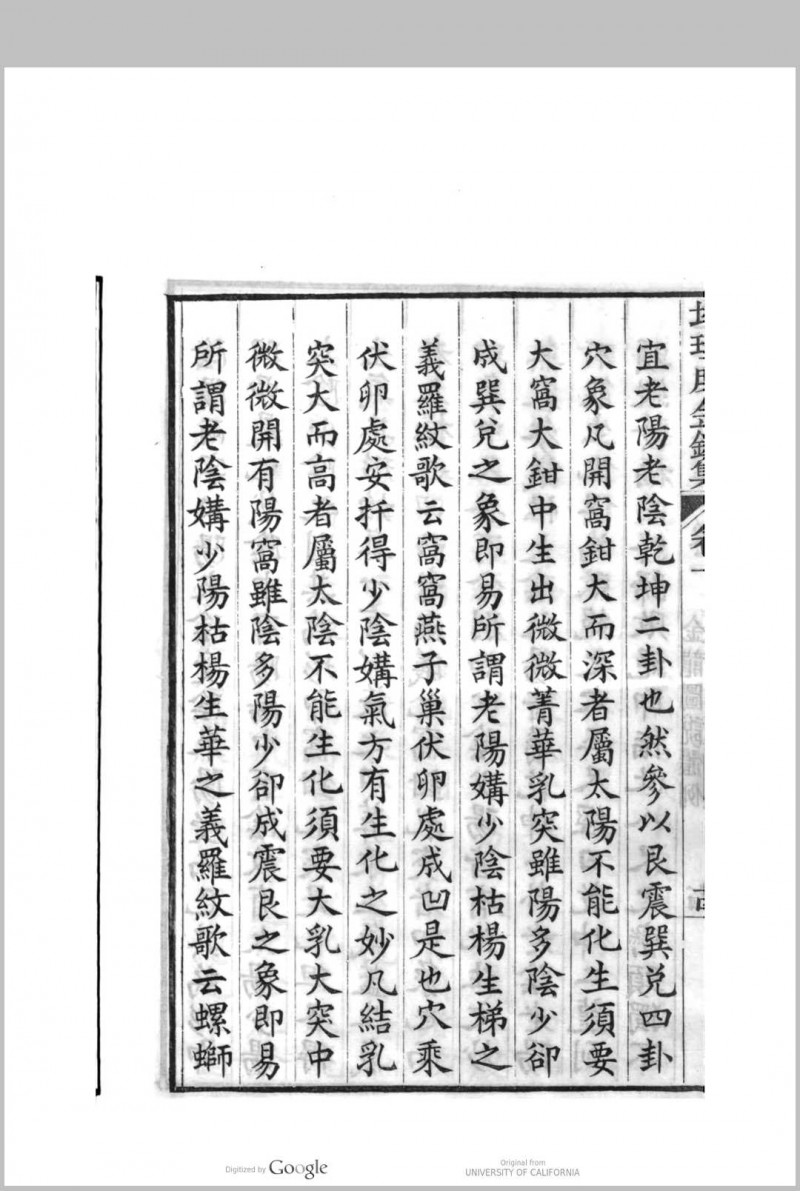 宜老陽老陰乾坤二卦也然參以艮震巽兌四卦
穴象凡開窩鉗大而深者屬太陽不能化生須要
大窩大鉗中生出微微菁華乳突雖陽多陰少卻
成巽兌之象即易所謂老陽媾少陰枯楊生梯之
義羅紋歌云窩窩燕子巢伏卵處成凹是也穴乘
伏卵處安扦得少陰媾氣方有生化之妙凡結乳
突大而高者屬太陰不能生化須要大乳大突中
微微開有陽窩雖陰多陽少卻成震艮之象即易
所謂老陰媾少陽枯楊生華之義羅紋歌云螺螄
Digitized by Google
Original from
UNIVERSITY OF CALIFORNIA